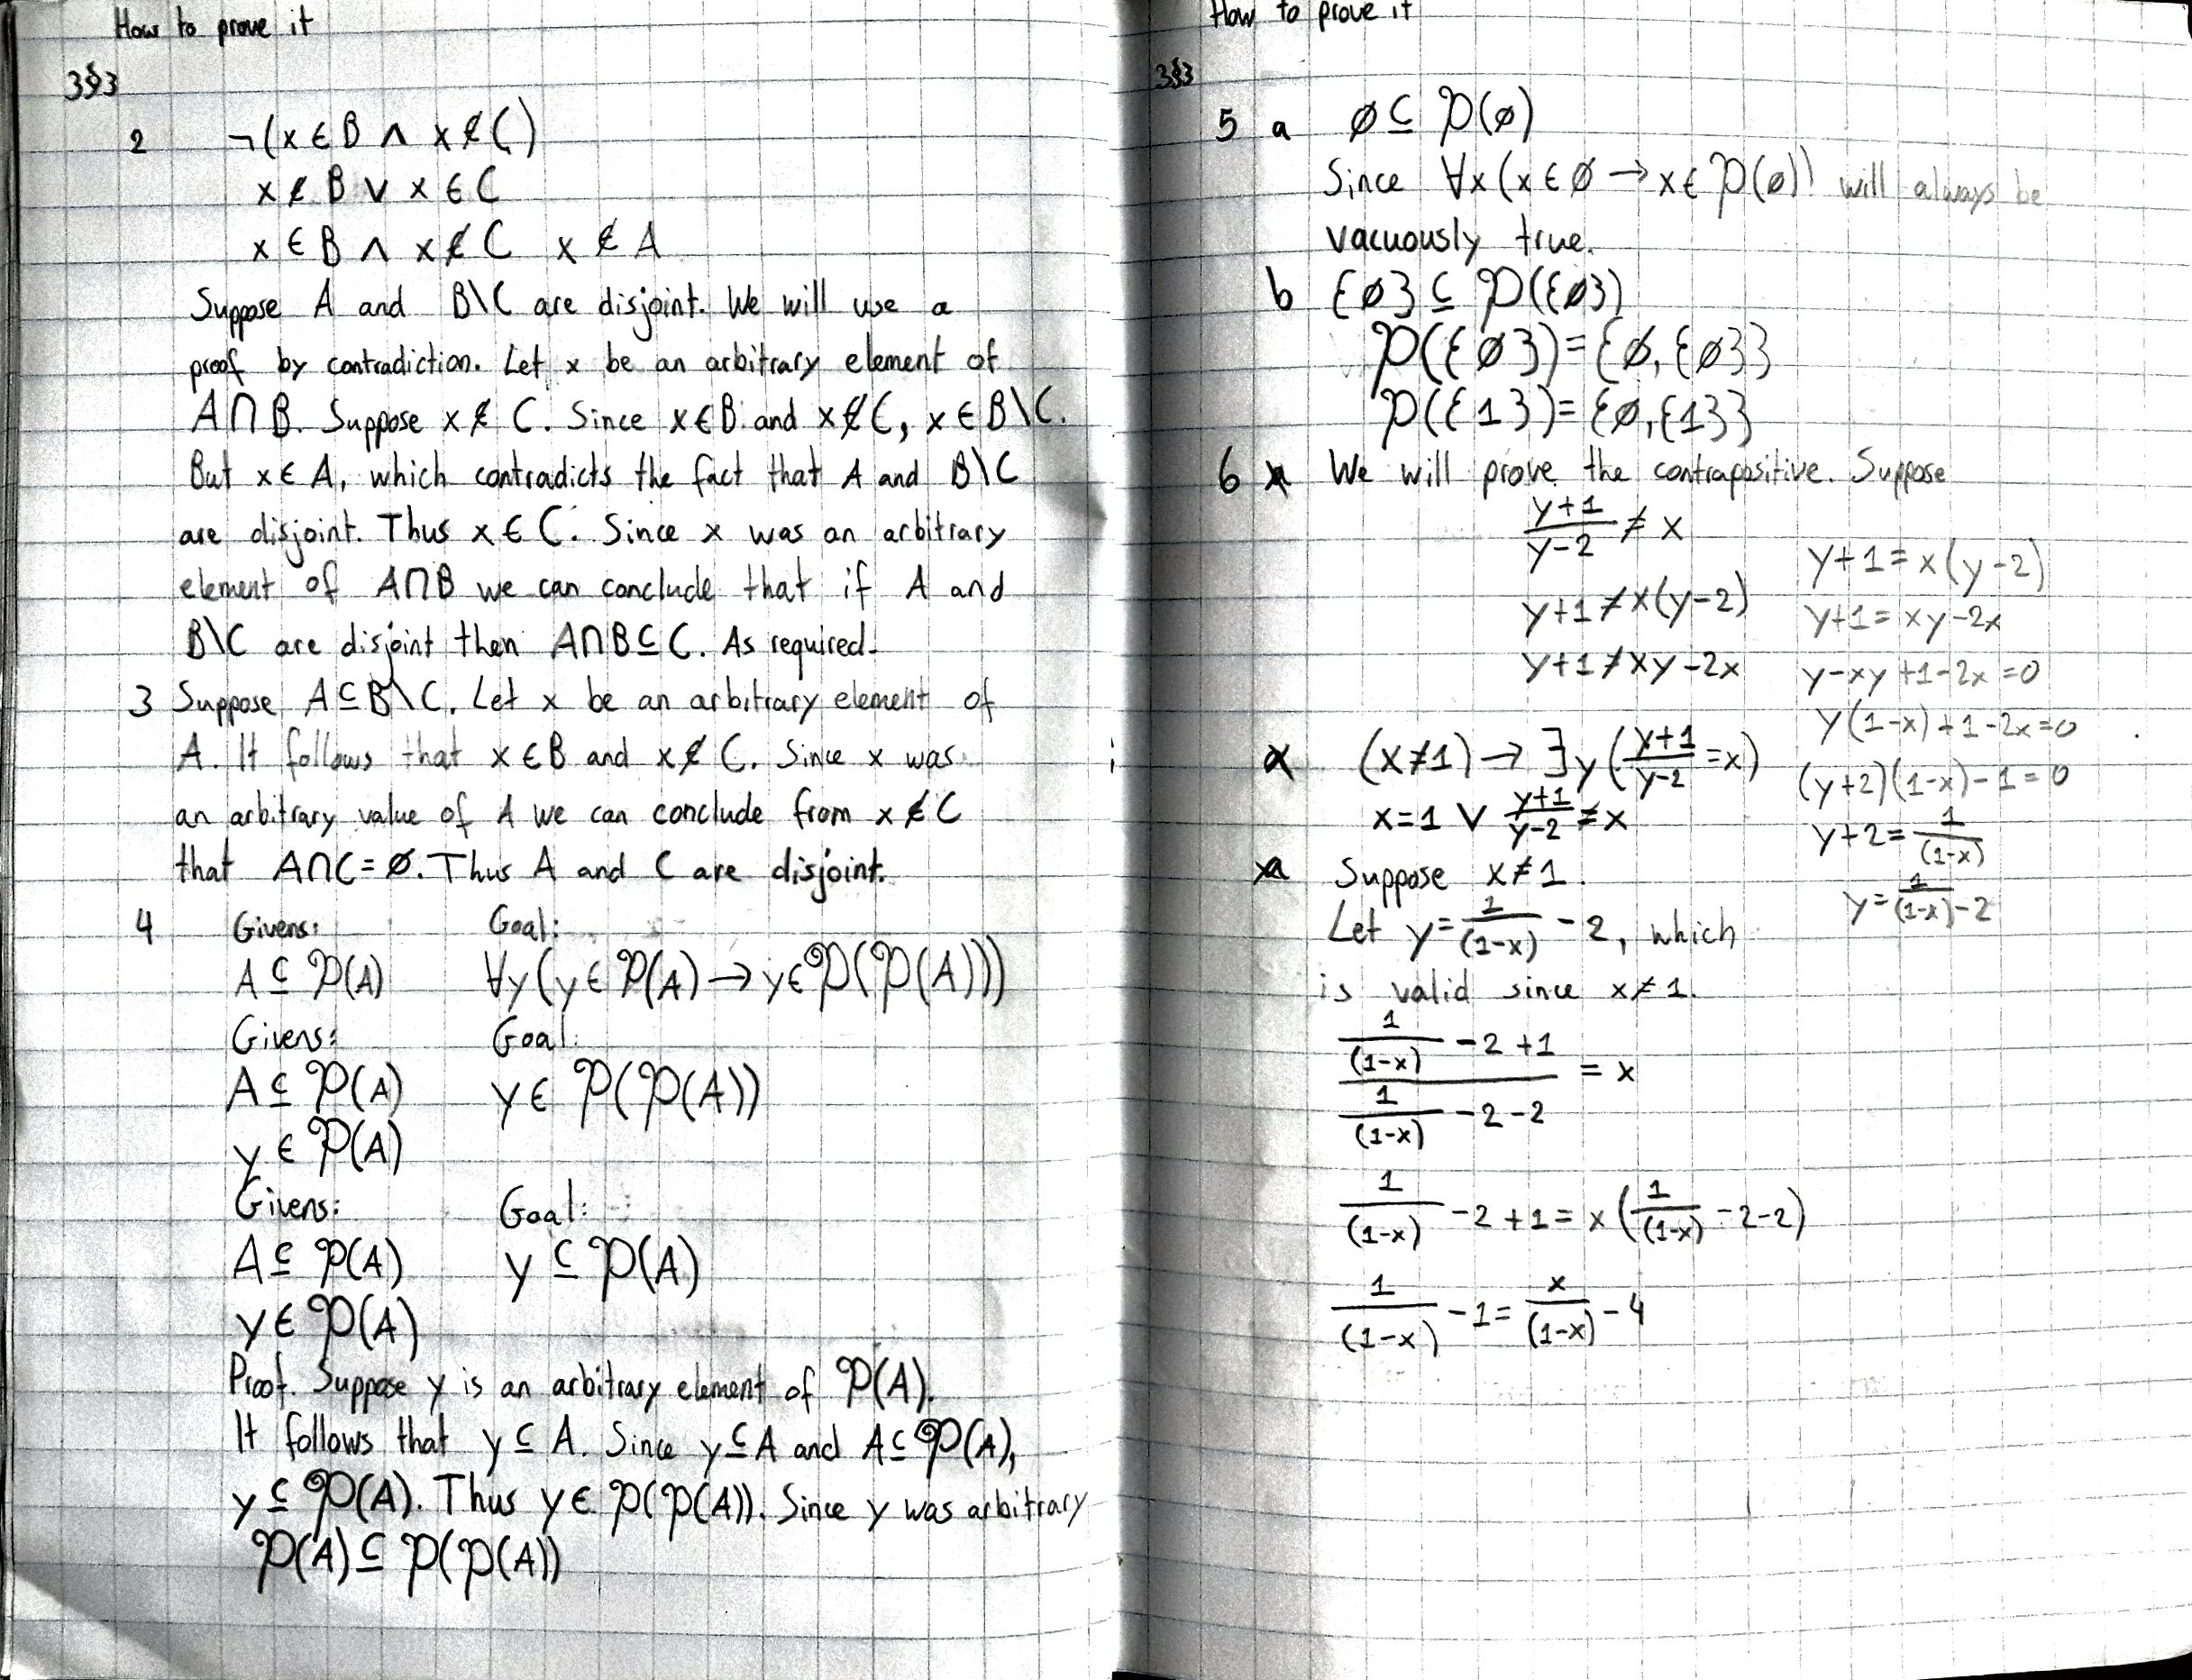 How to prove it
3§3
2 ¬(x ∈ B ∧ x ∉ C)
x ∉ B ∨ x ∈ C
x ∈ B ∧ x ∉ C x ∉ A
Suppose A and B\C are disjoint. We will use a
proof by contradiction. Let x be an arbitrary element of
A∩B. Suppose x ∉ C. Since x∈B and x∉C, x∈B\C.
But x∈A, which contradicts the fact that A and B\C
are disjoint. Thus x ∈ C. Since x was an arbitrary
element of A∩B we can conclude that if A and
B\C are disjoint then A∩B⊆C. As required.
3 Suppose A⊆B\C. Let x be an arbitrary element of
A. It follows that x∈B and x∉C. Since x was
an arbitrary value of A we can conclude from x∉C
that A∩C=∅. Thus A and C are disjoint.
4 Givens: Goal:
A ⊆ P(A) ∀y(y∈P(A)→y∈P(P(A)))
Givens: Goal:
A ⊆ P(A) y∈ P(P(A))
y ∈ P(A)
Givens: Goal:
A ⊆ P(A) y ⊆ P(A)
y∈ P(A)
Proof. Suppose y is an arbitrary element of P(A).
It follows that y⊆A. Since y⊆A and A⊆P(A),
y⊆P(A). Thus y∈P(P(A)). Since y was arbitrary
P(A)⊆P(P(A))
How to prove it
3§3
5 a ∅⊆ P(∅)
Since ∀x(x∈∅→x∈P(∅)) will always be
vacuously true.
b {∅} ⊆ P({∅})
P({∅})={∅,{∅}}
P({1})={∅,{1}}
6 We will prove the contrapositive. Suppose
(y+1)/(y-2) ≠ x
y+1≠x(y-2)
y+1≠xy-2x
y+1=x(y-2)
y+1=xy-2x
y-xy+1-2x=0
y(1-x)+1-2x=0
(y+2)(1-x)-1=0
y+2=1/(1-x)
y=1/(1-x)-2
a (x≠1)→∃y((y+1)/(y-2)=x)
x=1 ∨ (y+1)/(y-2)≠x
a Suppose x≠1.
Let y=1/(1-x) -2, which
is valid since x≠1.
(1/(1-x) -2+1)/(1/(1-x) -2-2) = x
1/(1-x) -2+1= x(1/(1-x) -2-2)
1/(1-x) -1= x/(1-x) -4